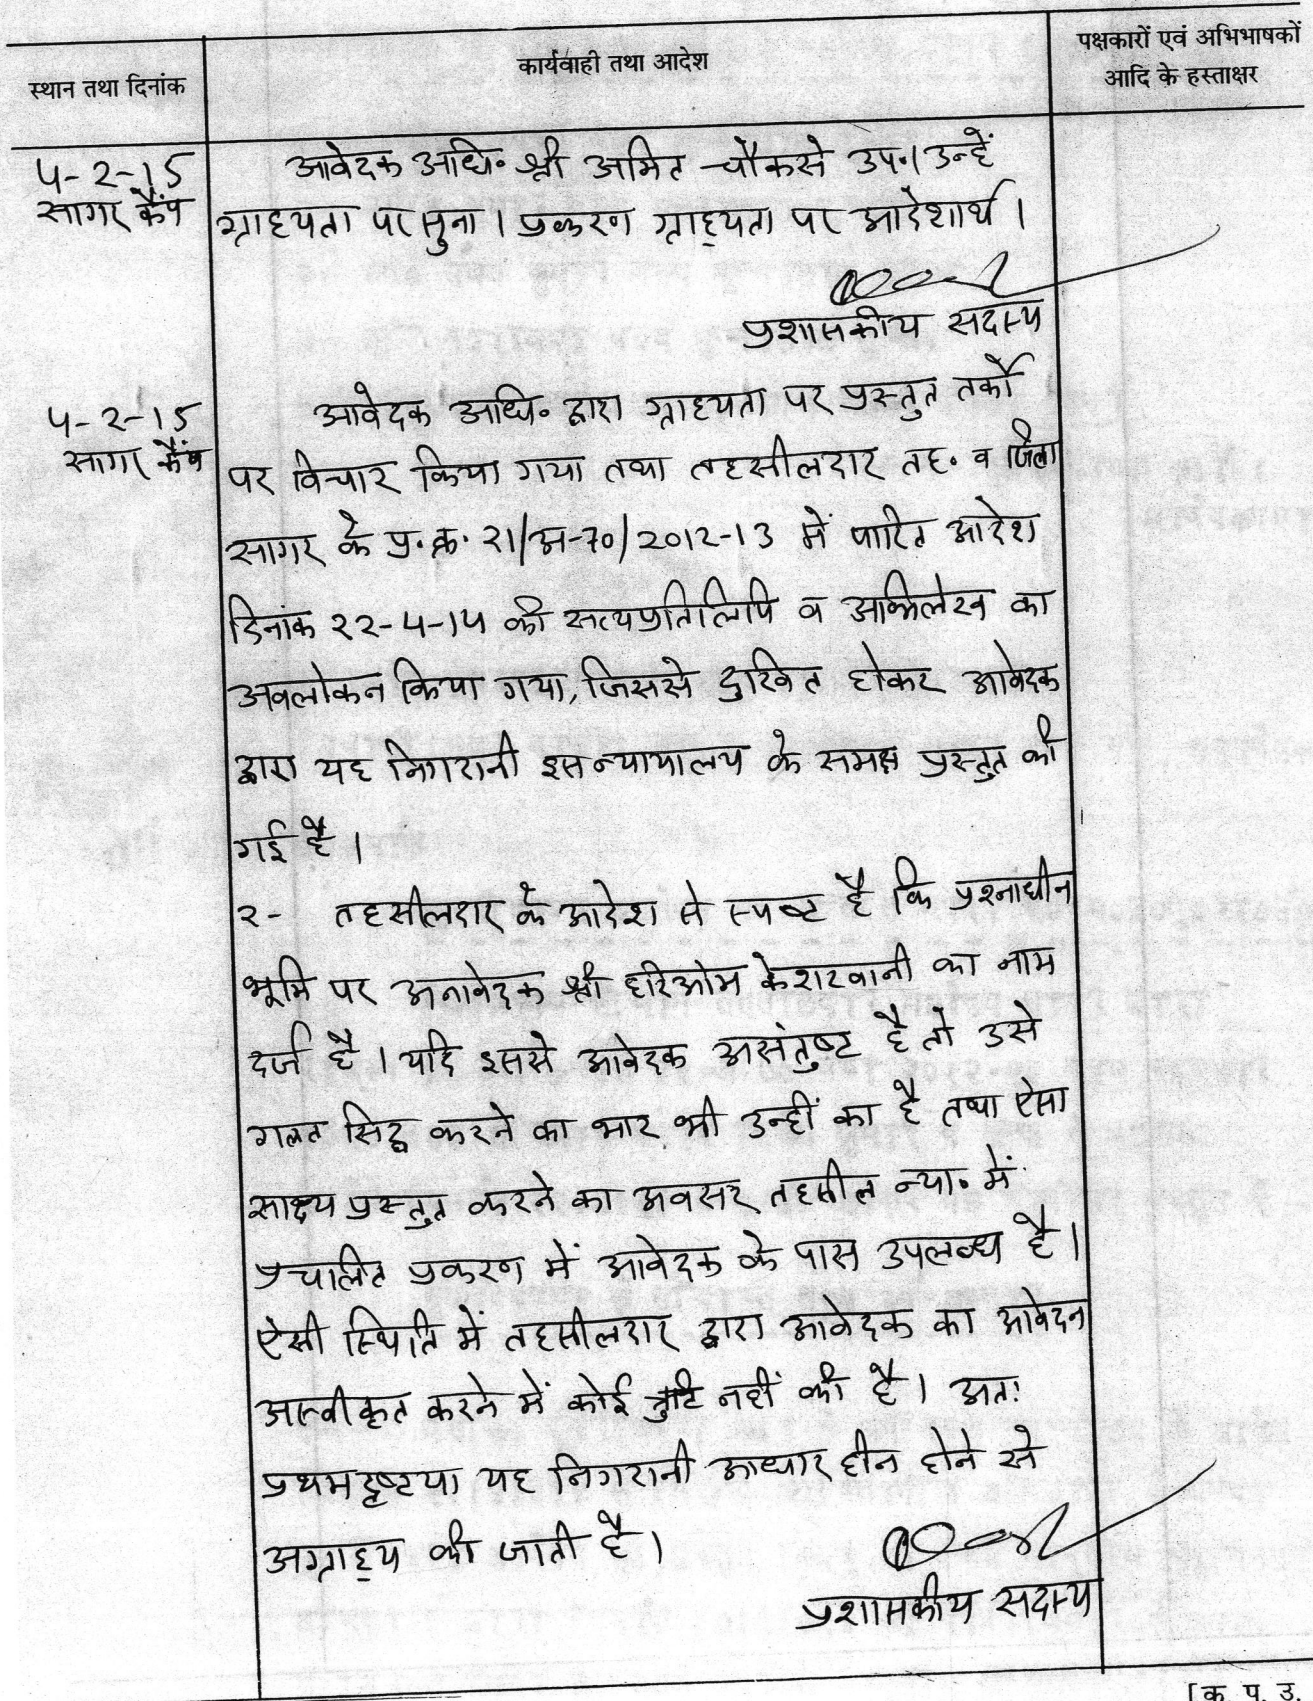 स्थान तथा दिनांक
कार्यवाही तथा आदेश
पक्षकारों एवं अभिभाषकों
आदि के हस्ताक्षर
4-2-15
सागर कैंप
आवेदक अधि॰ श्री अमित चौकसे उप॰। उन्हें
ग्राह्यता पर सुना। प्रकरण ग्राह्यता पर आदेशार्थ।
प्रशासकीय सदस्य
4-2-15
सागर कैंप
आवेदक अधि॰ द्वारा ग्राह्यता पर प्रस्तुत तर्कों
पर विचार किया गया तथा तहसीलदार तह॰ व जिला
सागर के प्र.क्र. 21/अ-70/2012-13 में पारित आदेश
दिनांक 22-4-14 की सत्यप्रतिलिपि व अभिलेख का
अवलोकन किया गया, जिससे दुखित होकर आवेदक
द्वारा यह निगरानी इस न्यायालय के समक्ष प्रस्तुत की
गई है।
2- तहसीलदार के आदेश से स्पष्ट है कि प्रश्नाधीन
भूमि पर अनावेदक श्री हरिओम केशरवानी का नाम
दर्ज है। यदि इससे आवेदक असंतुष्ट है तो उसे
गलत सिद्ध करने का भार भी उन्हीं का है तथा ऐसा
साक्ष्य प्रस्तुत करने का अवसर तहसील न्या॰ में
प्रचालित प्रकरण में आवेदक के पास उपलब्ध है।
ऐसी स्थिति में तहसीलदार द्वारा आवेदक का आवेदन
अस्वीकृत करने में कोई त्रुटि नहीं की है। अतः
प्रथमदृष्टया यह निगरानी आधार हीन होने से
अग्राह्य की जाती है।
प्रशासकीय सदस्य
[क. प. उ.